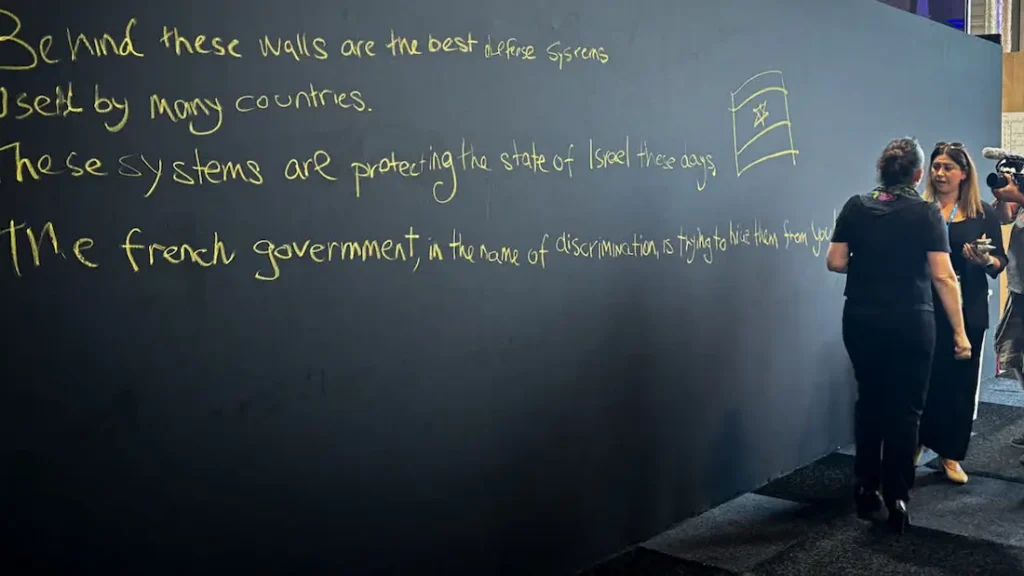 Behind these walls are the best defense systems
Used by many countries.
These systems are protecting the state of Israel these days,
The french government, in the name of discrimination, is trying to hide them from you